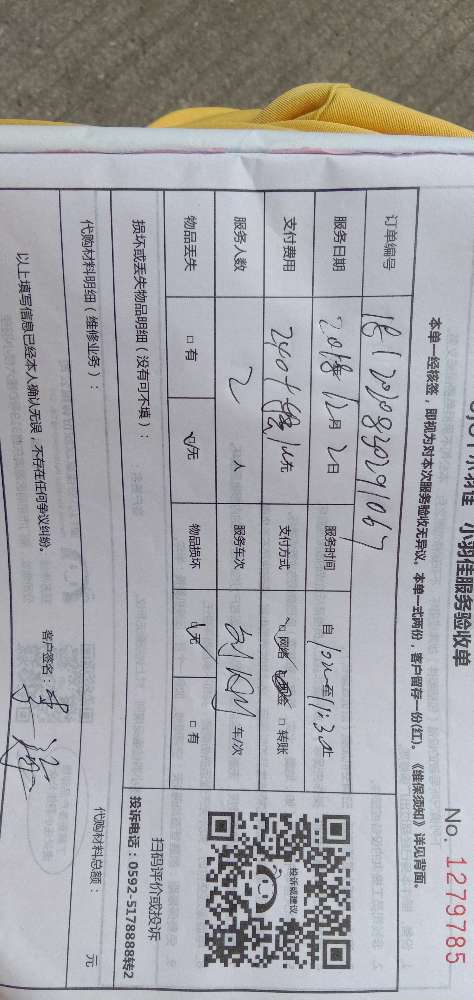 小羽佳服务验收单
No. 1279785
本单一经核签，即视为对本次服务验收无异议。本单一式两份，客户留存一份(红)。《维保须知》详见背面。
订单编号
服务日期 2018年12月2日 服务时间 自
支付费用 元 支付方式 □网络 □现金 □转账
服务人数 2 人 服务车次 车/次
物品丢失 □有 ☑无 物品损坏 ☑无 □有
损坏或丢失物品明细（没有可不填）：
投诉或建议
扫码评价或投诉
投诉电话：0592-5178888转2
代购材料明细（维修业务）：
代购材料总额： 元
以上填写信息已经本人确认无误，不存在任何争议纠纷。
客户签名：